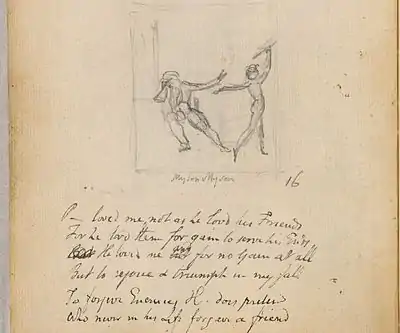 My Son! My Son
16
P— loved me, not as he lovd his Friends
For he lovd them for gain to serve his Ends
He loved me and for no Gain at all
But to rejoice & triumph in my fall
To forgive Enemies H. does pretend
Who never in his Life forgave a friend